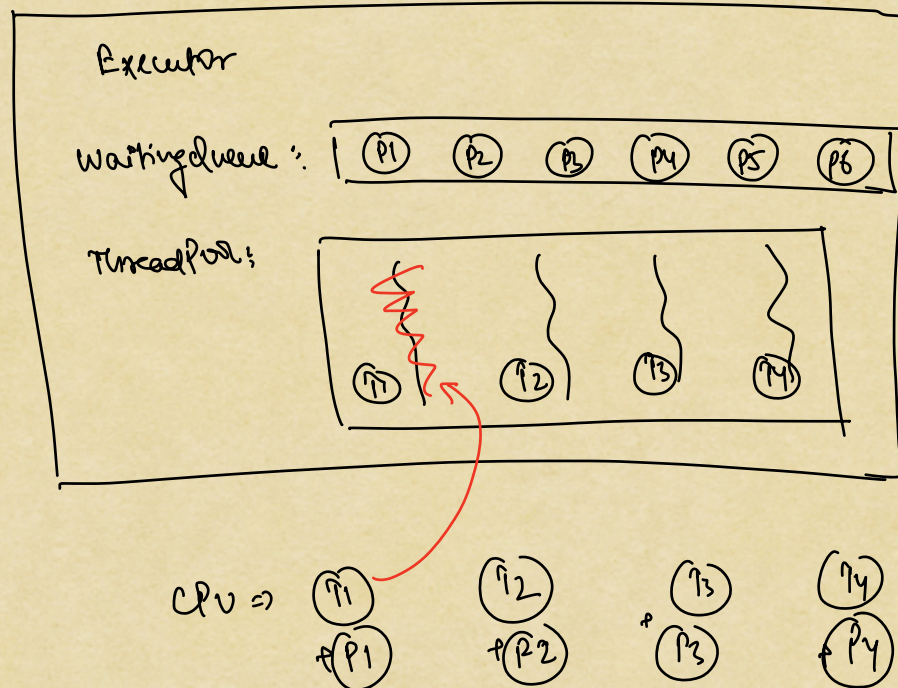 Executor
WaitingQueue : P1 P2 P3 P4 P5 P6
ThreadPool :
T1 T2 T3 T4
CPU => T1 T2 T3 T4
+ P1 + P2 + P3 + P4